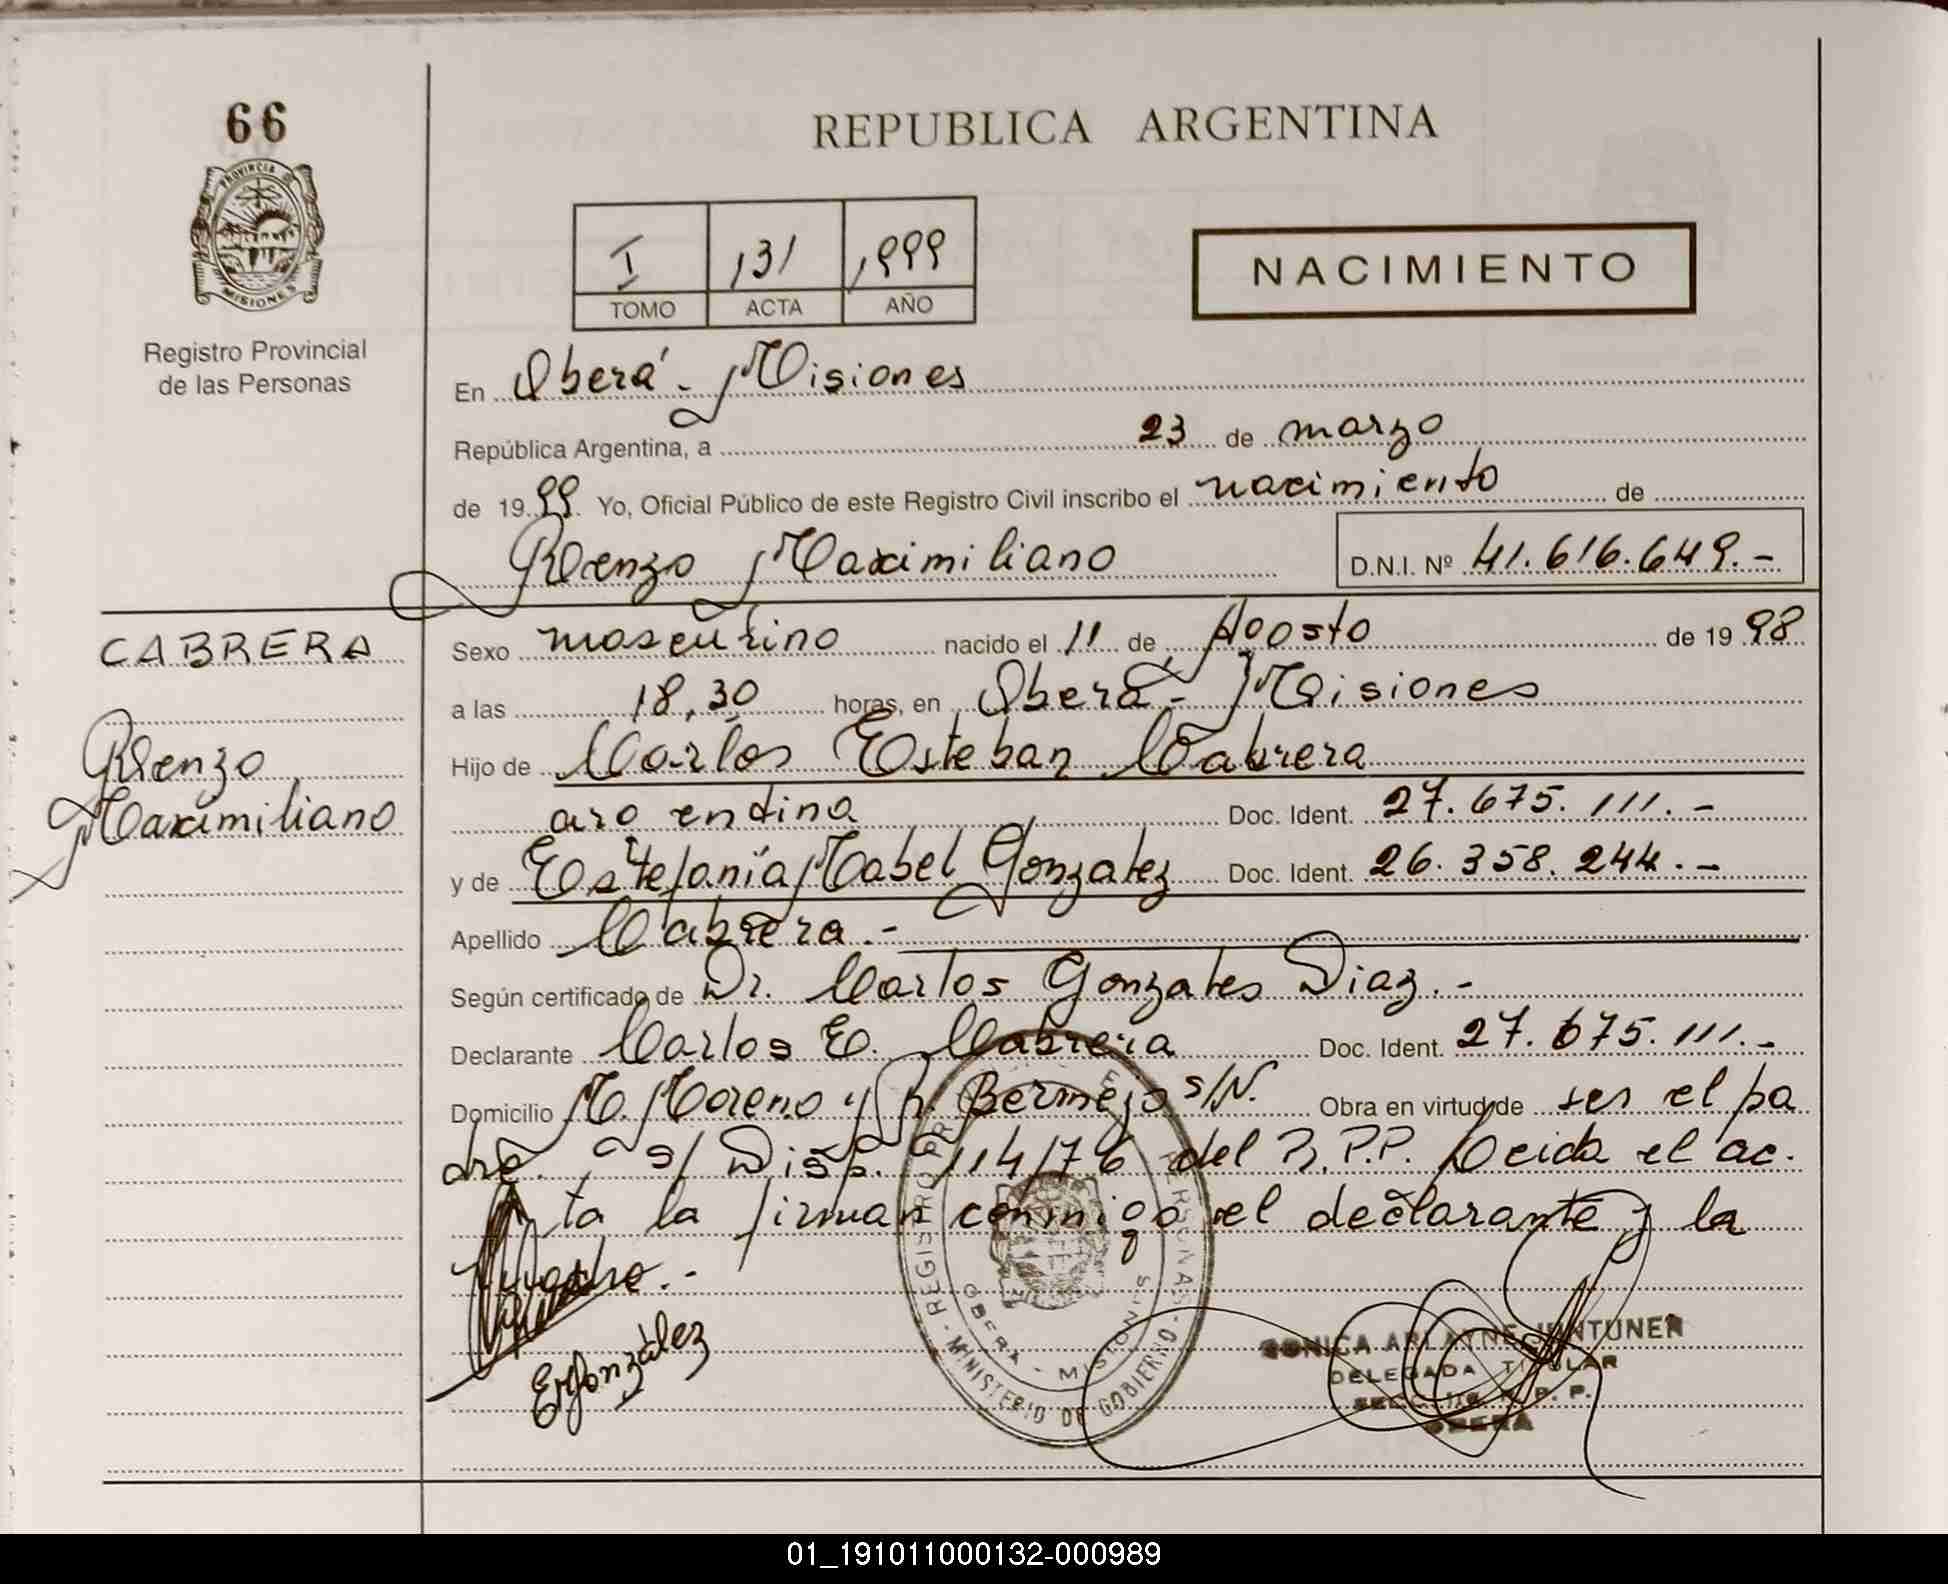 66
REPUBLICA ARGENTINA
PROVINCIA DE
MISIONES
I 131 1999
TOMO ACTA AÑO
NACIMIENTO
Registro Provincial
de las Personas
En Oberá - Misiones
República Argentina, a 23 de marzo
de 1999. Yo, Oficial Público de este Registro Civil inscribo el nacimiento de
Renzo Maximiliano D.N.I. Nº 41.616.649.-
CABRERA
Renzo
Maximiliano
Sexo masculino nacido el 11 de Agosto de 1998
a las 18,30 horas, en Oberá - Misiones
Hijo de Carlos Esteban Cabrera
argentina Doc. Ident. 27.675.111.-
y de Estefanía Mabel Gonzalez Doc. Ident. 26.358.244.-
Apellido Cabrera.-
Según certificado de Dr. Carlos Gonzales Diaz.-
Declarante Carlos E. Cabrera Doc. Ident. 27.675.111.-
Domicilio M. Moreno y Bermejo s/N. Obra en virtud de ser el pa
dre. s/ Disp. 114/76 del R.P.P. Leida el ac.
ta la firman conmigo el declarante y la
madre.-
EGonzález
REGISTRO PROV DE LAS PERSONAS - MINISTERIO DE GOBIERNO -
OBERA - MISIONES
ARLAYNE JUNTUNEN
DELEGADA TITULAR
R. P. P.
OBERA
01_191011000132-000989